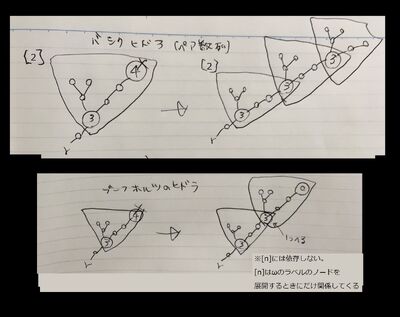 バシクヒドラ (ペア数列)
[2]
④
[2]
③
③
③
③
r
r
ブーフホルツのヒドラ
④
③
③
③
0
r
r
1つへる
※[n]には依存しない。
[n]はωのラベルのノードを
展開するときにだけ関係してくる